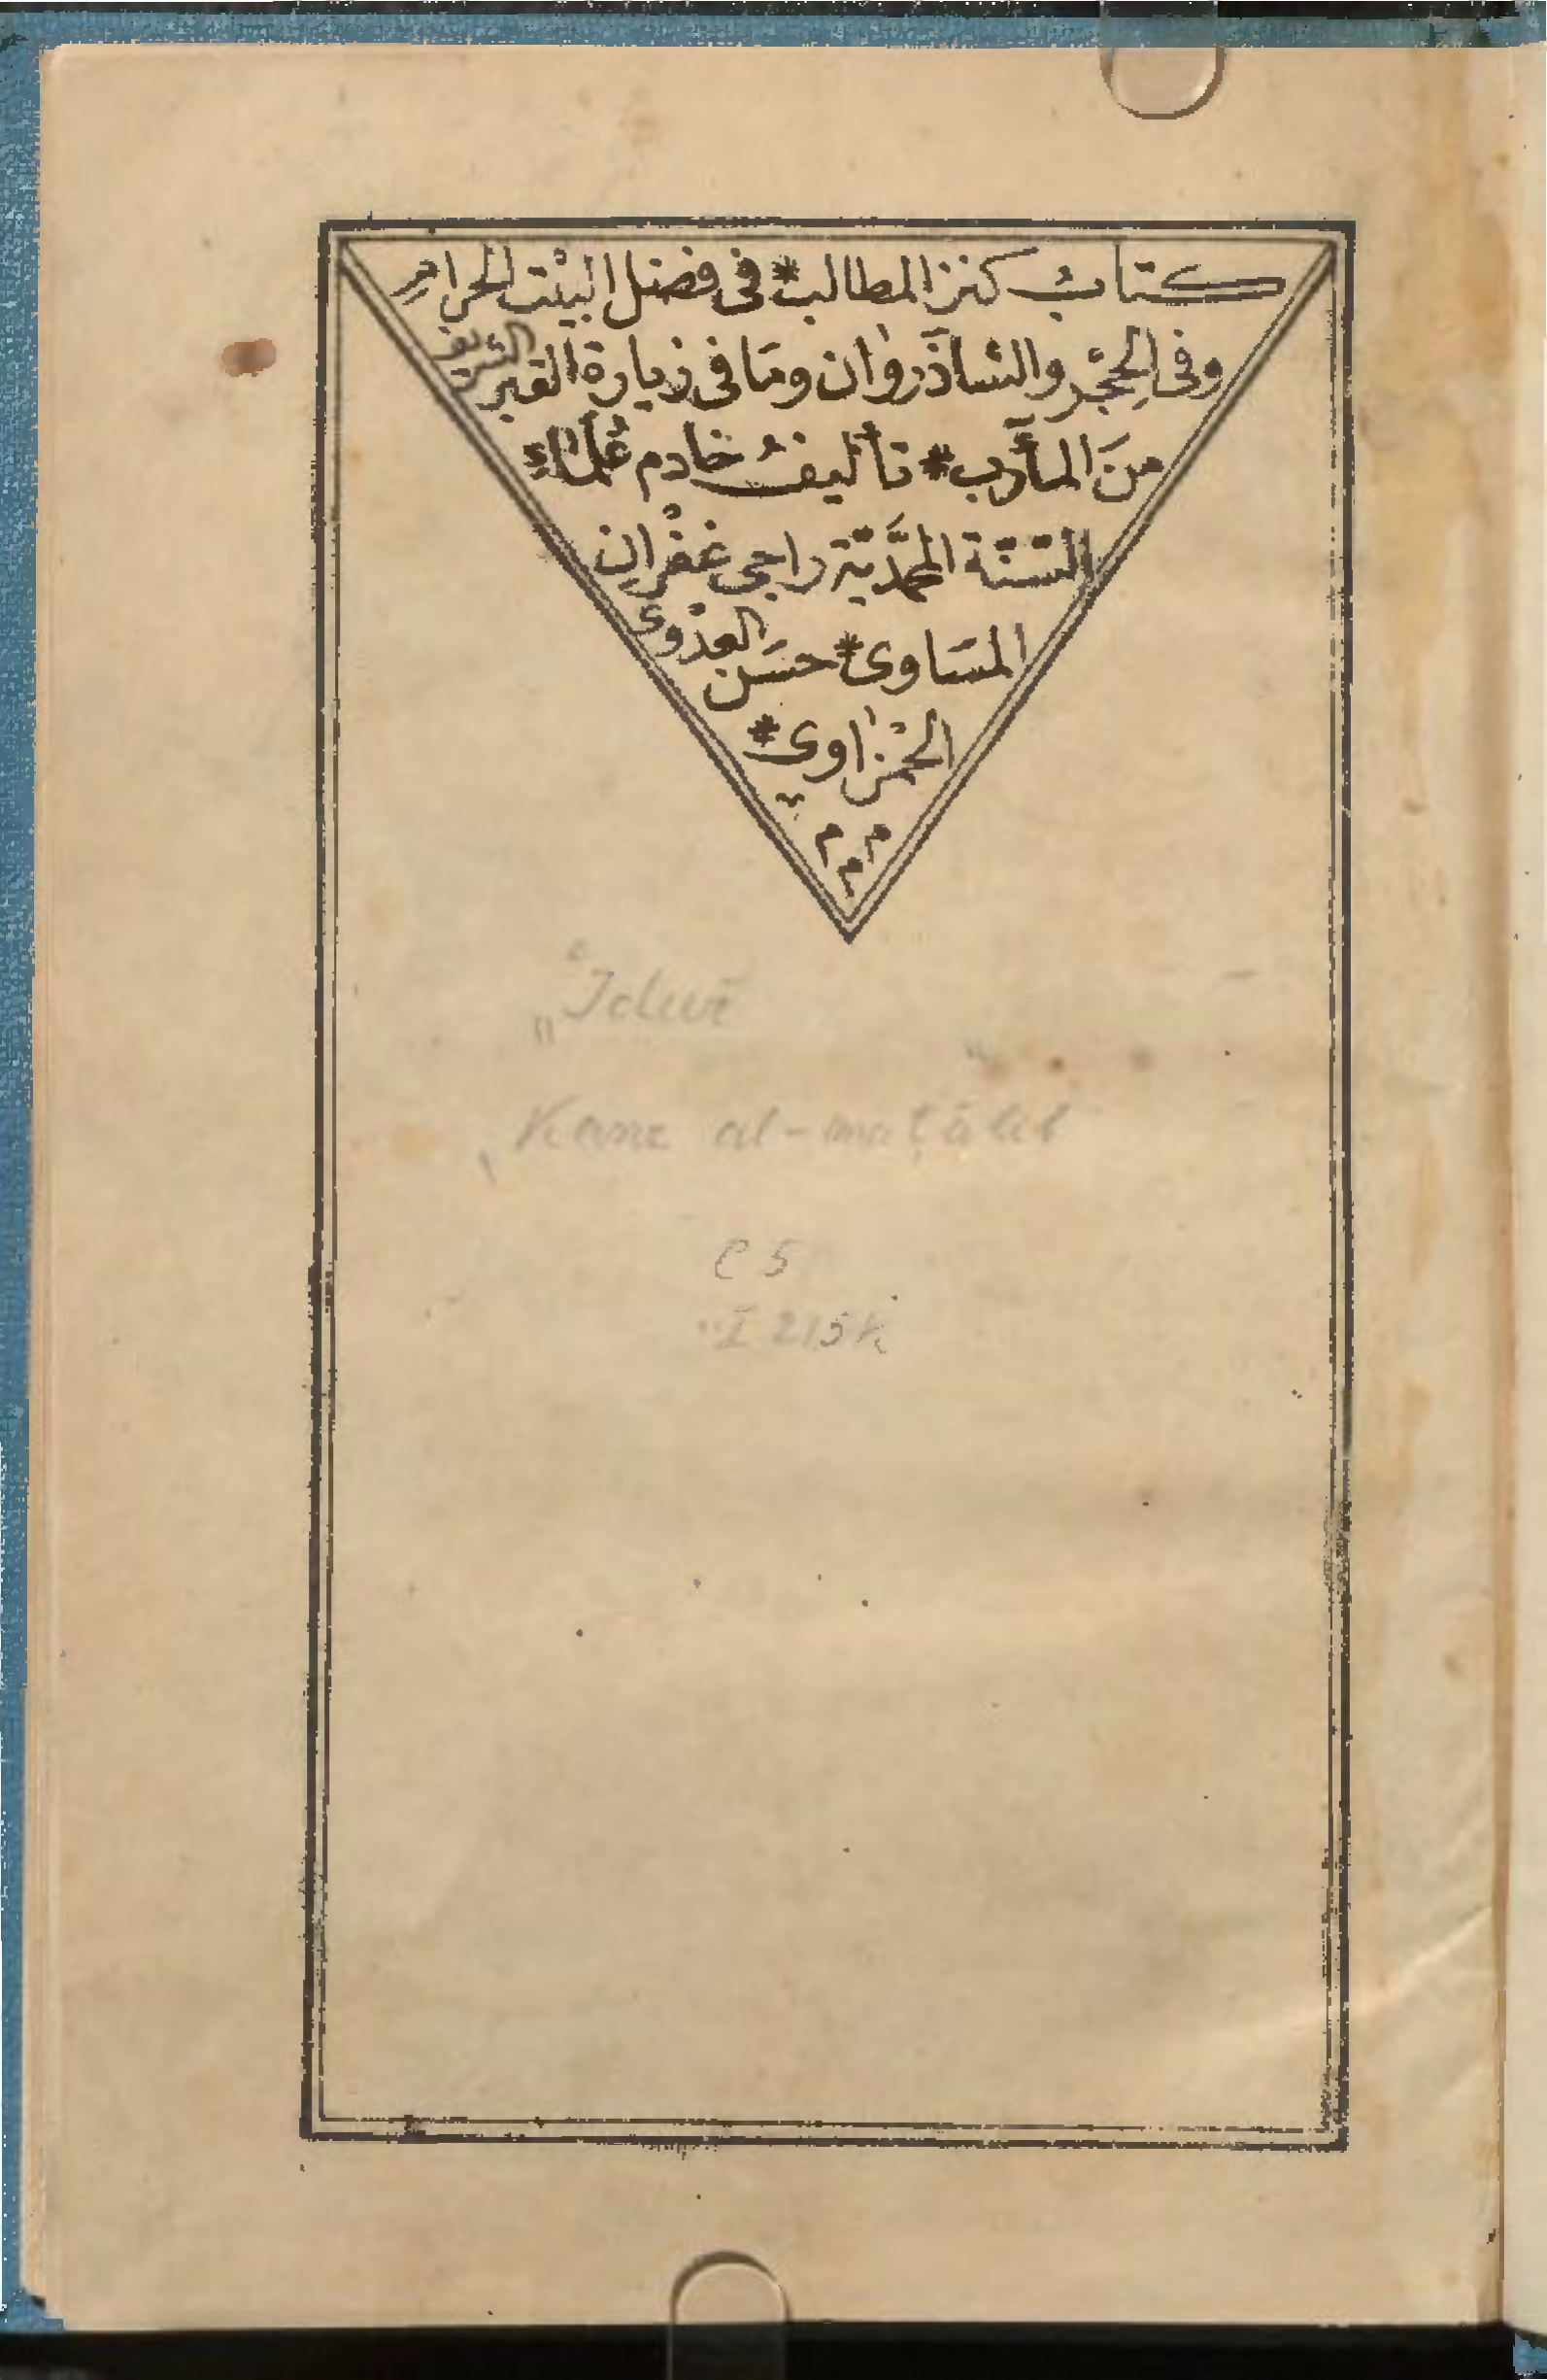 كتابُ كنز المطالب * فى فضل البيْت الحرامِ
وفى الحِجْرِ والشاذَروَان ومَا فى زيارة القبر الشريف
منَ المآرب * تأليفُ خادم عُلمَاءِ
السّنّة المحمَّديّة راجى غفْران
المسَاوى * حسَن العِدْوى
الحمْزاوي *
م م م
"ʿIdwī
Kanz al-maṭālib
C 5
"I 215k